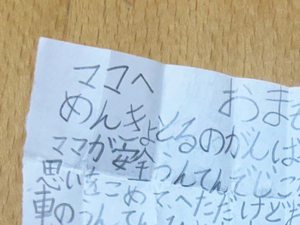 ママへ おま
めんきょとるのがんば
ママが安全うんてんでじこ
思いをこめて、へただけど
車の